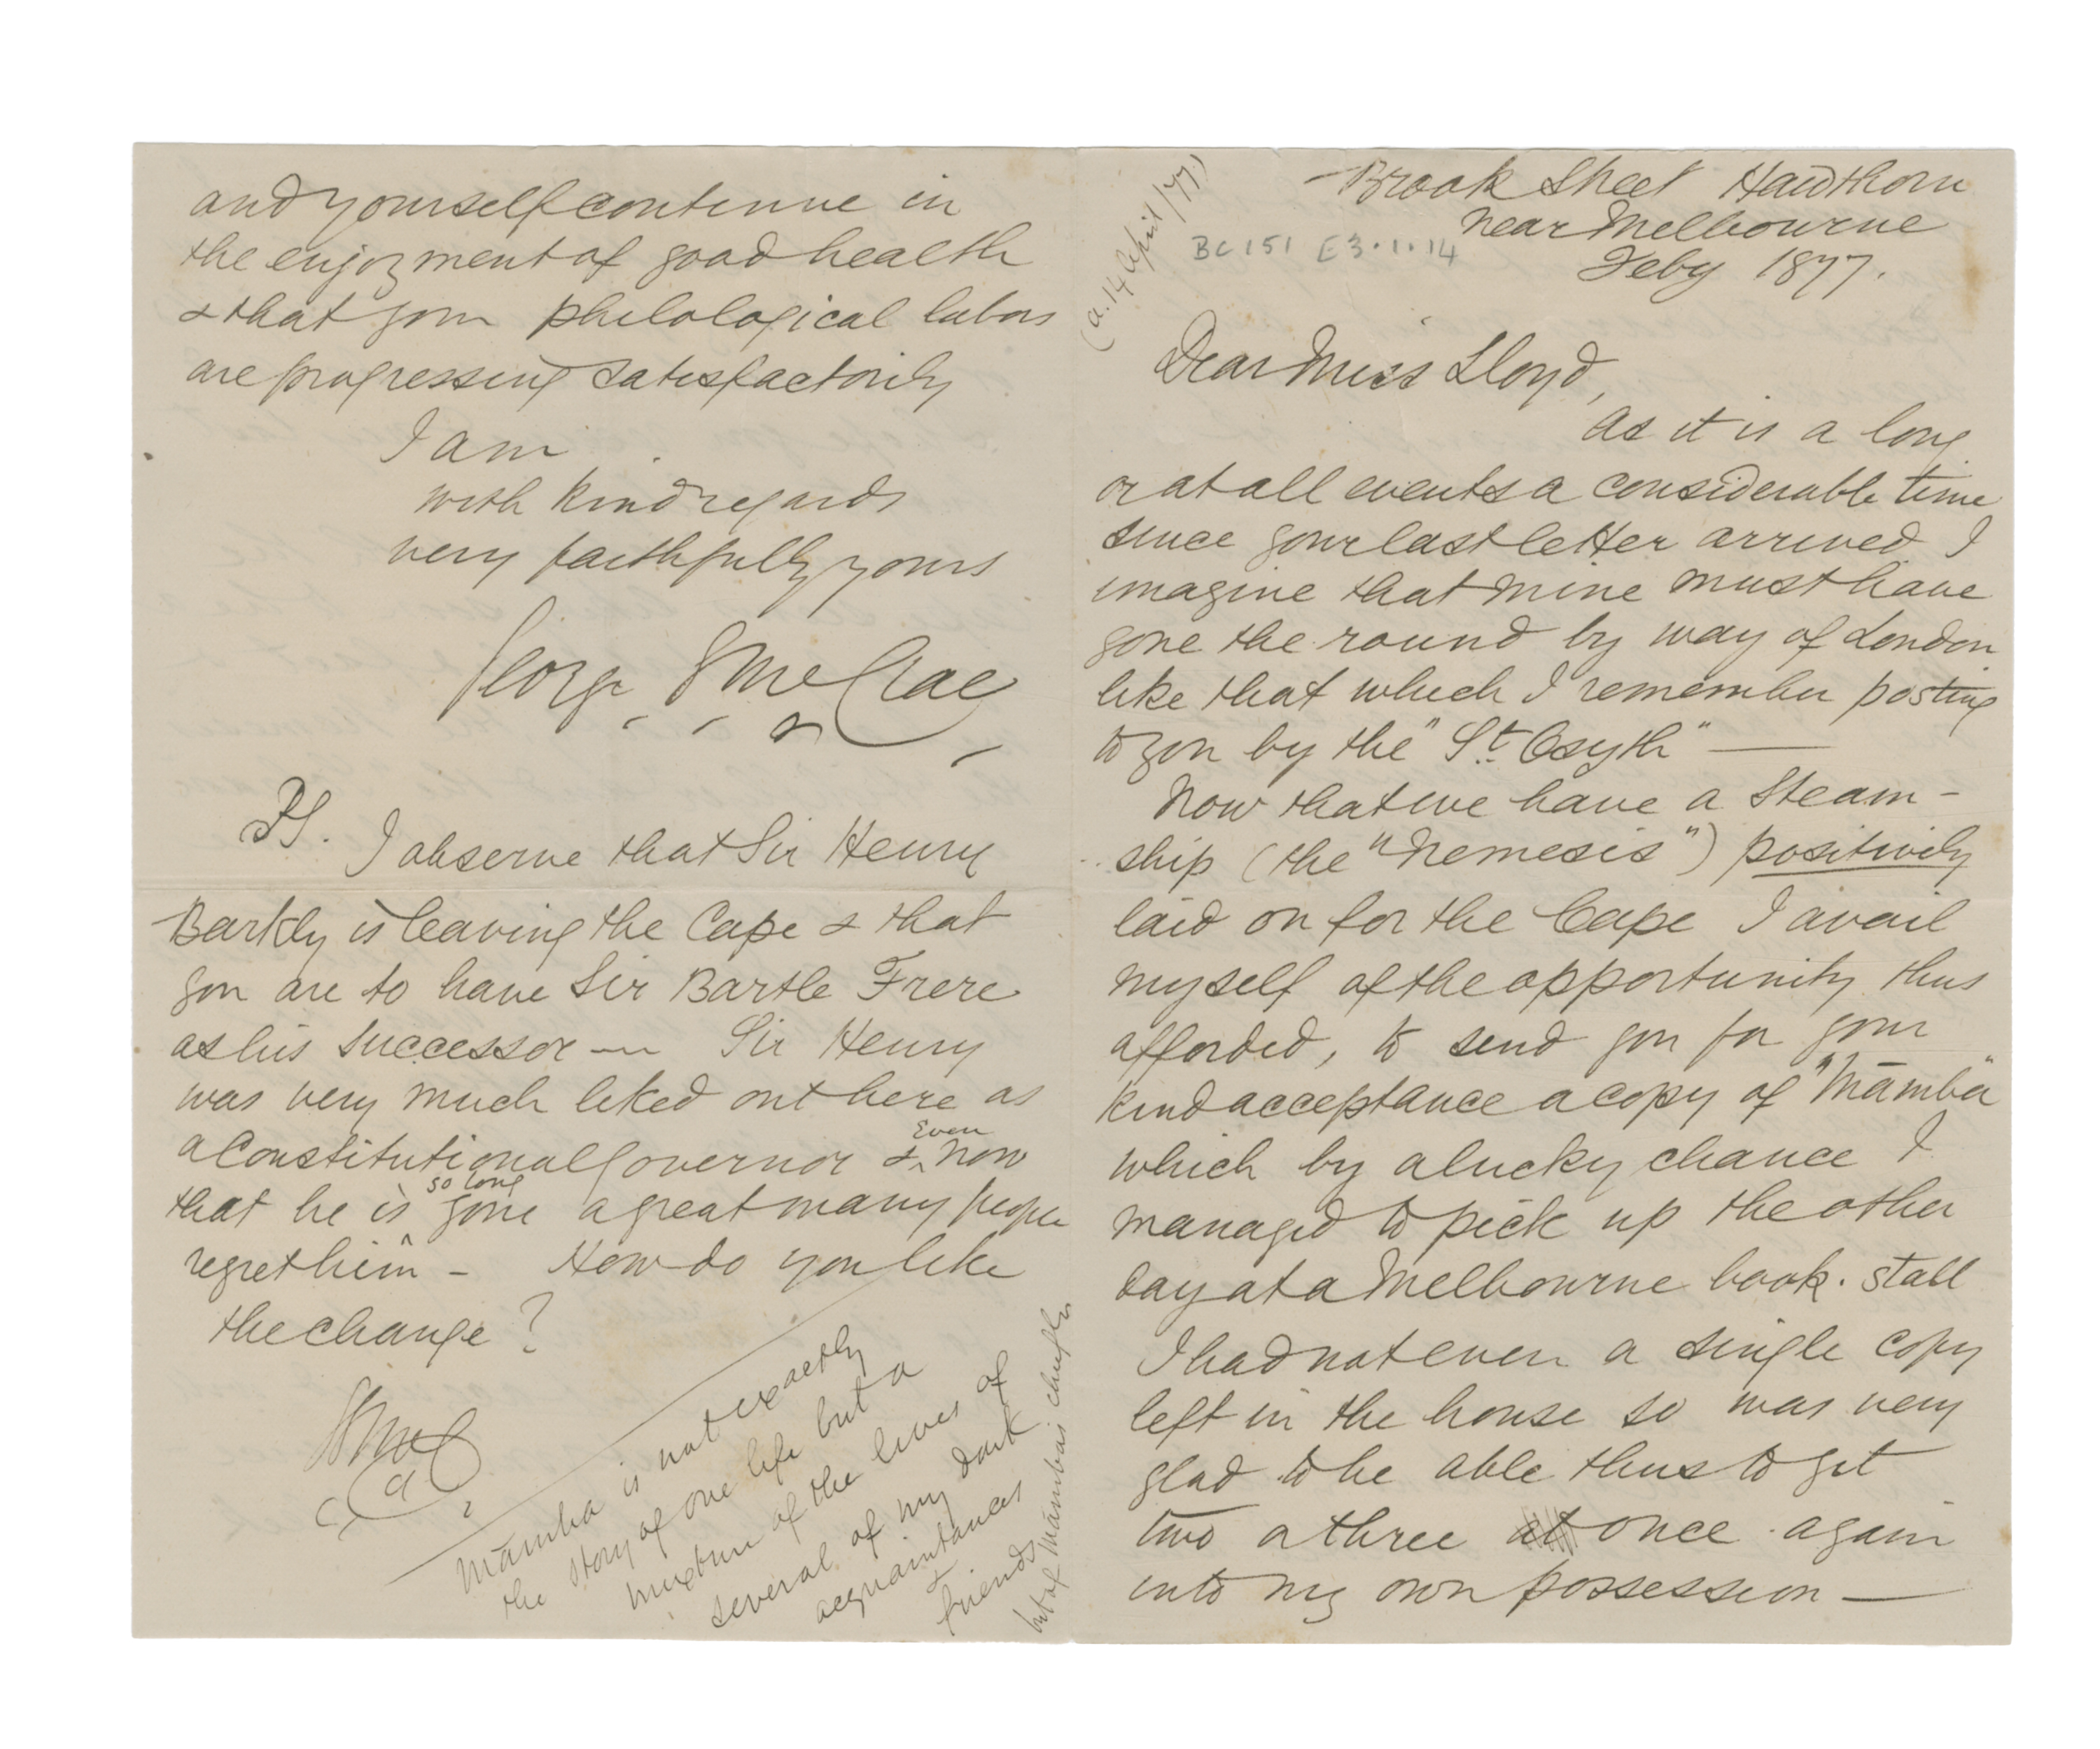 Brook Street Hawthorn
near Melbourne
Feby 1877.
(a. 14 April/77)
BC 151 E3.1.14
Dear Miss Lloyd,
As it is a long
or at all events a considerable time
since your last letter arrived I
imagine that mine must have
gone the round by way of London
like that which I remember posting
to you by the "St. Osyth" —
Now that we have a Steam-
ship (the "Nemesis") positively
laid on for the Cape I avail
myself of the opportunity thus
afforded, to send you for your
kind acceptance a copy of "Māmba"
which by a lucky chance I
managed to pick up the other
day at a Melbourne book-stall
I had not even a single copy
left in the house so was very
glad to be able thus to get
two or three at once again
into my own possession —
and yourself continue in
the enjoyment of good health
& that your philological labors
are progressing satisfactorily
I am
with kind regards
very faithfully yours
George G McCrae
PS. I observe that Sir Henry
Barkly is leaving the Cape & that
you are to have Sir Bartle Frere
as his successor — Sir Henry
was very much liked out here as
a Constitutional Governor & even now
that he is so long gone a great many people
regret him – How do you like
the change?
GMcC
Māmba is not exactly
the story of one life but a
mixture of the lives of
several of my dark
acquaintances
&
friends
but of Māmba's chiefly